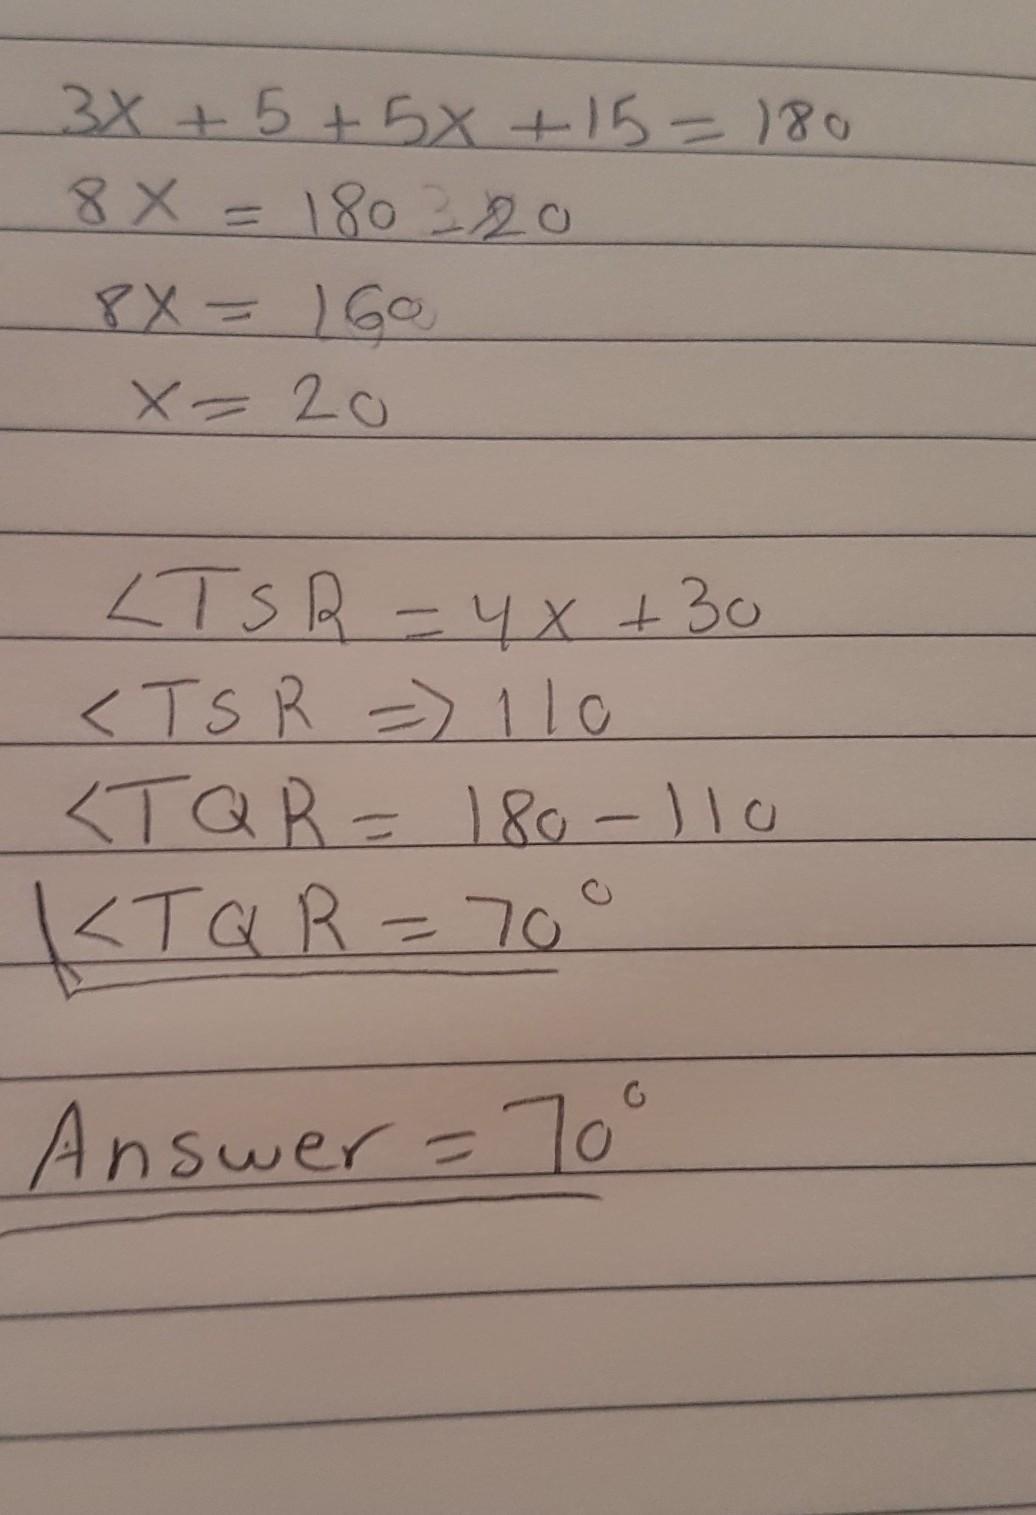 3x + 5 + 5x + 15 = 180
8x = 180 - 20
8x = 160
x = 20
<TSR = 4x + 30
<TSR => 110
<TQR = 180 - 110
<TQR = 70°
Answer = 70°